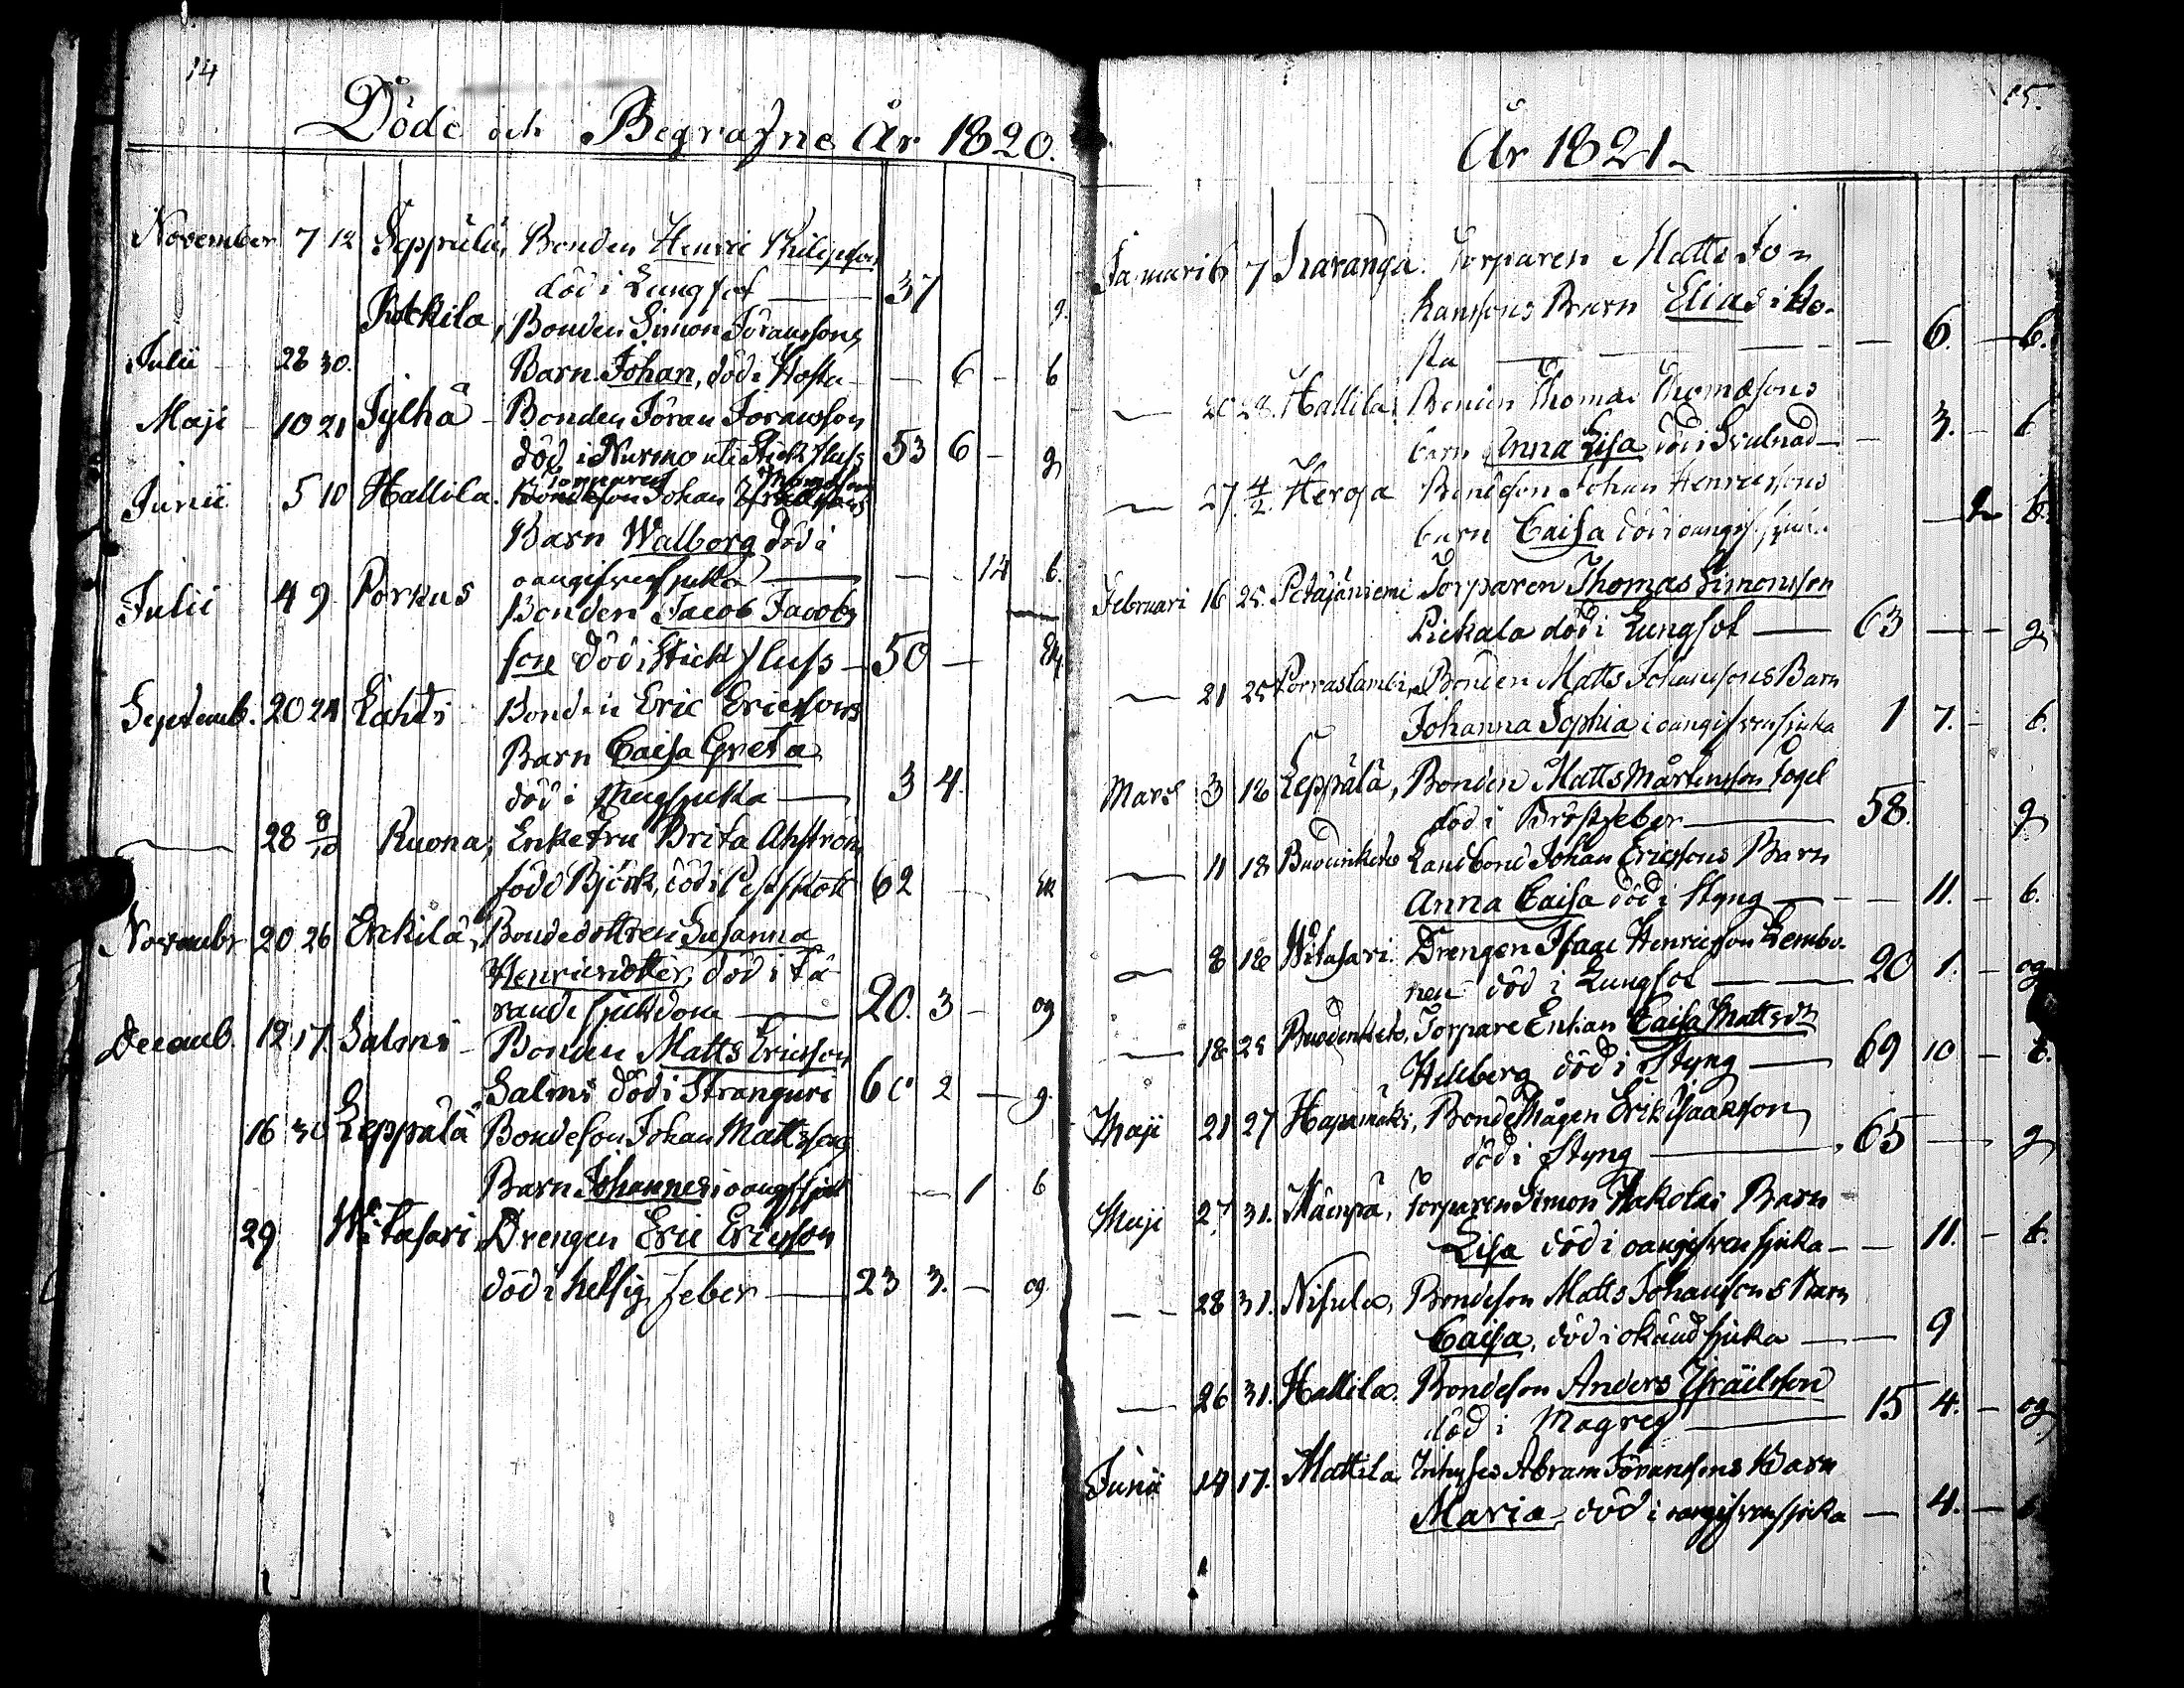 14
Döde och Begrafne År 1820.
November 7 12 Seppälä, Bonden Henric Philipsson
död i Lungsot — 37 g.
Kockila, Bonden Simon Jöranssons
Julii 28 30. Barn Johan, död i Hosta — — 6 — b
Maji 10 21 Jylhä Bonden Jöran Joransson
död i Nurmo uti Stickfluss 53 6 — g
Torparen Thomasson
Junii 5 10 Hallila. Bondeson Johan
Barn Walborg död i
oangifven sjuka — — 14 b.
Julii 4 9 Porkus Bonden Jacob Jacobs
son död i Stickfluss — 50 —
Septemb. 20 24 Lahti Bonden Eric Ericssons
Barn Caisa Greta
död i Magsjuka — 3 4
— 28 8/10 Ruona, Enkefru Brita Ahlström
född Björk, död i 62
Novembr 20 26 Erkilä, Bondedottren Susanna
Henricsdotter, död i tä-
rande sjukdom — 20. 3 — og
Decemb. 12 17. Salmi Bonden Matts Ericsson
Salmi död i Stranguri 60 2 — g.
16 30 Leppälä Bondeson Johan Mattssons
Barn Johannes i oangf sjuk — — 1 b
29 Witasari, Drengen Eric Ericsson
död i hetsig feber — 23 3. — og.
15.
År 1821
Januari 6 7 Haranga. Torparen Matts Jo-
hanssons Barn Elias i Ho-
sta — — — 6. — b.
— 20 28. Hallila, Bonden Thomas Thomæsons
barn Anna Lisa död i Svulnad — — 3. — b
— 27. 4/2. Heroja Bondeson Johan Henricssons
barn Caisa död i oangif. sjuk.
Februari 16 25. Petäjäniemi Torparen Thomas Simonsson
Pickala död i Lungsot — 63 — — g
— 21 25 Porraslambi, Bonden Matts Johanssons Barn
Johanna Sophia i oangifven sjuka 1 7. — b.
Mars 3 18 Leppälä, Bonden Matts Mårtensson Fogel
död i Bröstfeber — 58. g
— 11 18 Landbond Johan Ericssons Barn
Anna Caisa död i Styng — — — 11. — b.
— 8 18 Witasari. Drengen Isaac Henricsson Lembo-
nen död i Lungsot — — 20 1. — og
— 18 25 Torpare Enkan Caisa Mattsdr
Hellberg död i Styng — 69 10 — b.
Maji 21 27 Hapamäki, BondeMågen Erik Isaaksson
död i Styng — 65 — g
Maji 27 31. Mäenpä, Torparen Simon Hakolas Barn
Lisa död i oangifven sjuka — — 11. — b.
— 28 31. Nisula, Bondeson Matts Johanssons Barn
Caisa, död i okänd sjuka — — 9
— 26 31. Hallila. Bondeson Anders Isräilsson
död i Magreg — 15 4. — og
Junii 14 17. Mattila Inhyses Abram Jöranssons Barn
Maria död i oangifven sjuka — 4. — b